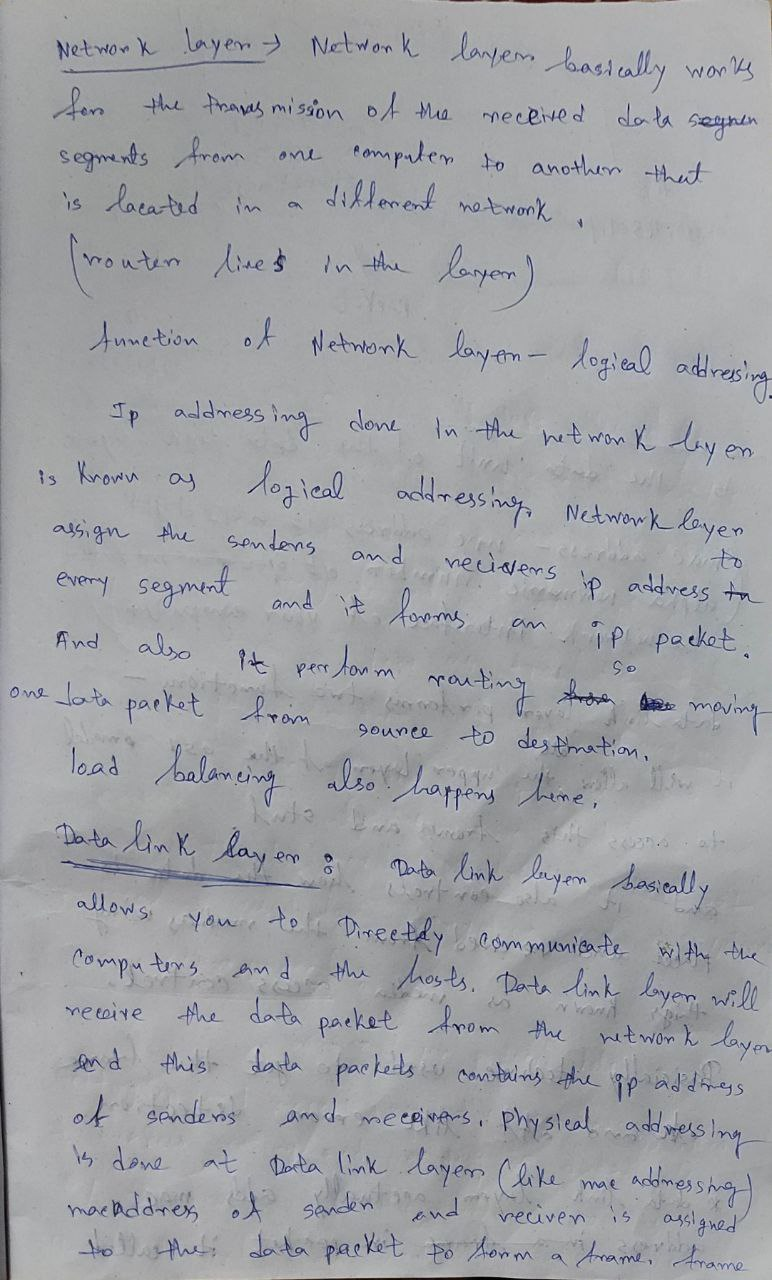 Network layer → Network layer basically works
for the transmission of the received data segmen
segments from one computer to another that
is lacated in a different network.
(router lives in the layer)
function of Network layer - logical addressing.
Ip addressing done in the network layer
is known as logical addressing. Network layer
assign the senders and recievers ip address to
every segment and it forms an ip packet.
And also it perform routing so moving
one data packet from source to destination.
load balancing also happens here.
Data link layer : Data link layer basically
allows you to Directly communicate with the
computers and the hosts. Data link layer will
receive the data packet from the network layer
and this data packets contains the ip address
of senders and receivers. physical addressing
is done at Data link layer (like mac addressing)
macaddress of sender and reciver is assigned
to the data packet to form a frame. frame